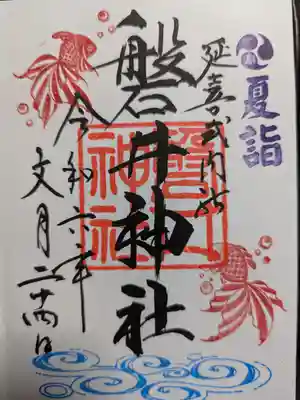 夏詣
延喜式内所
磐井神社
磐井
神社
令和六年
文月二十四日